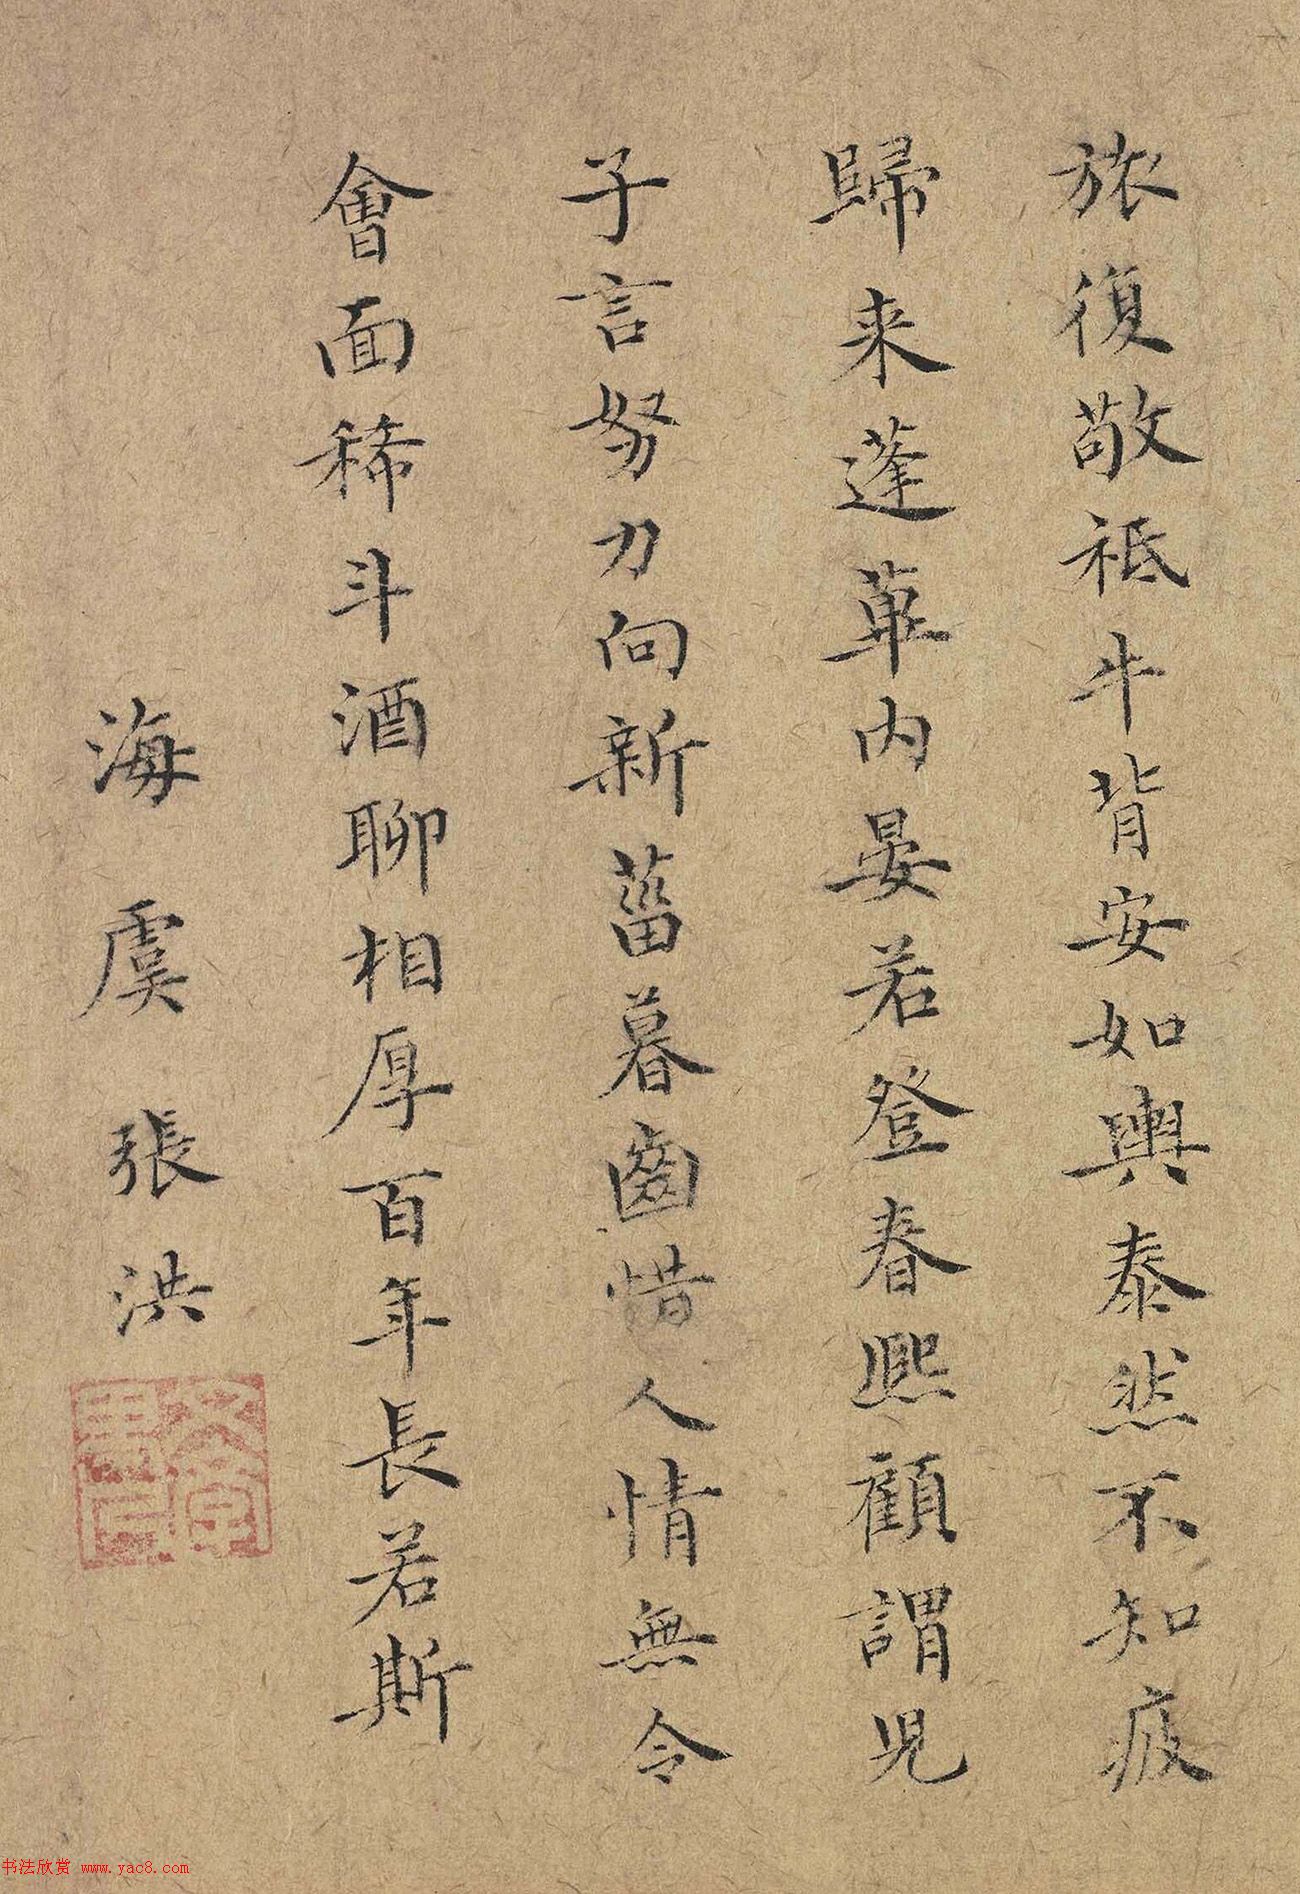 旅復敬祗牛背安如輿泰然不知疲
歸来蓬蓽内晏若登春熙顧謂兒
子言努力向新菑暮齒惜人情無令
會面稀斗酒聊相厚百年長若斯
海虞張洪
书法欣赏 www.yac8.com